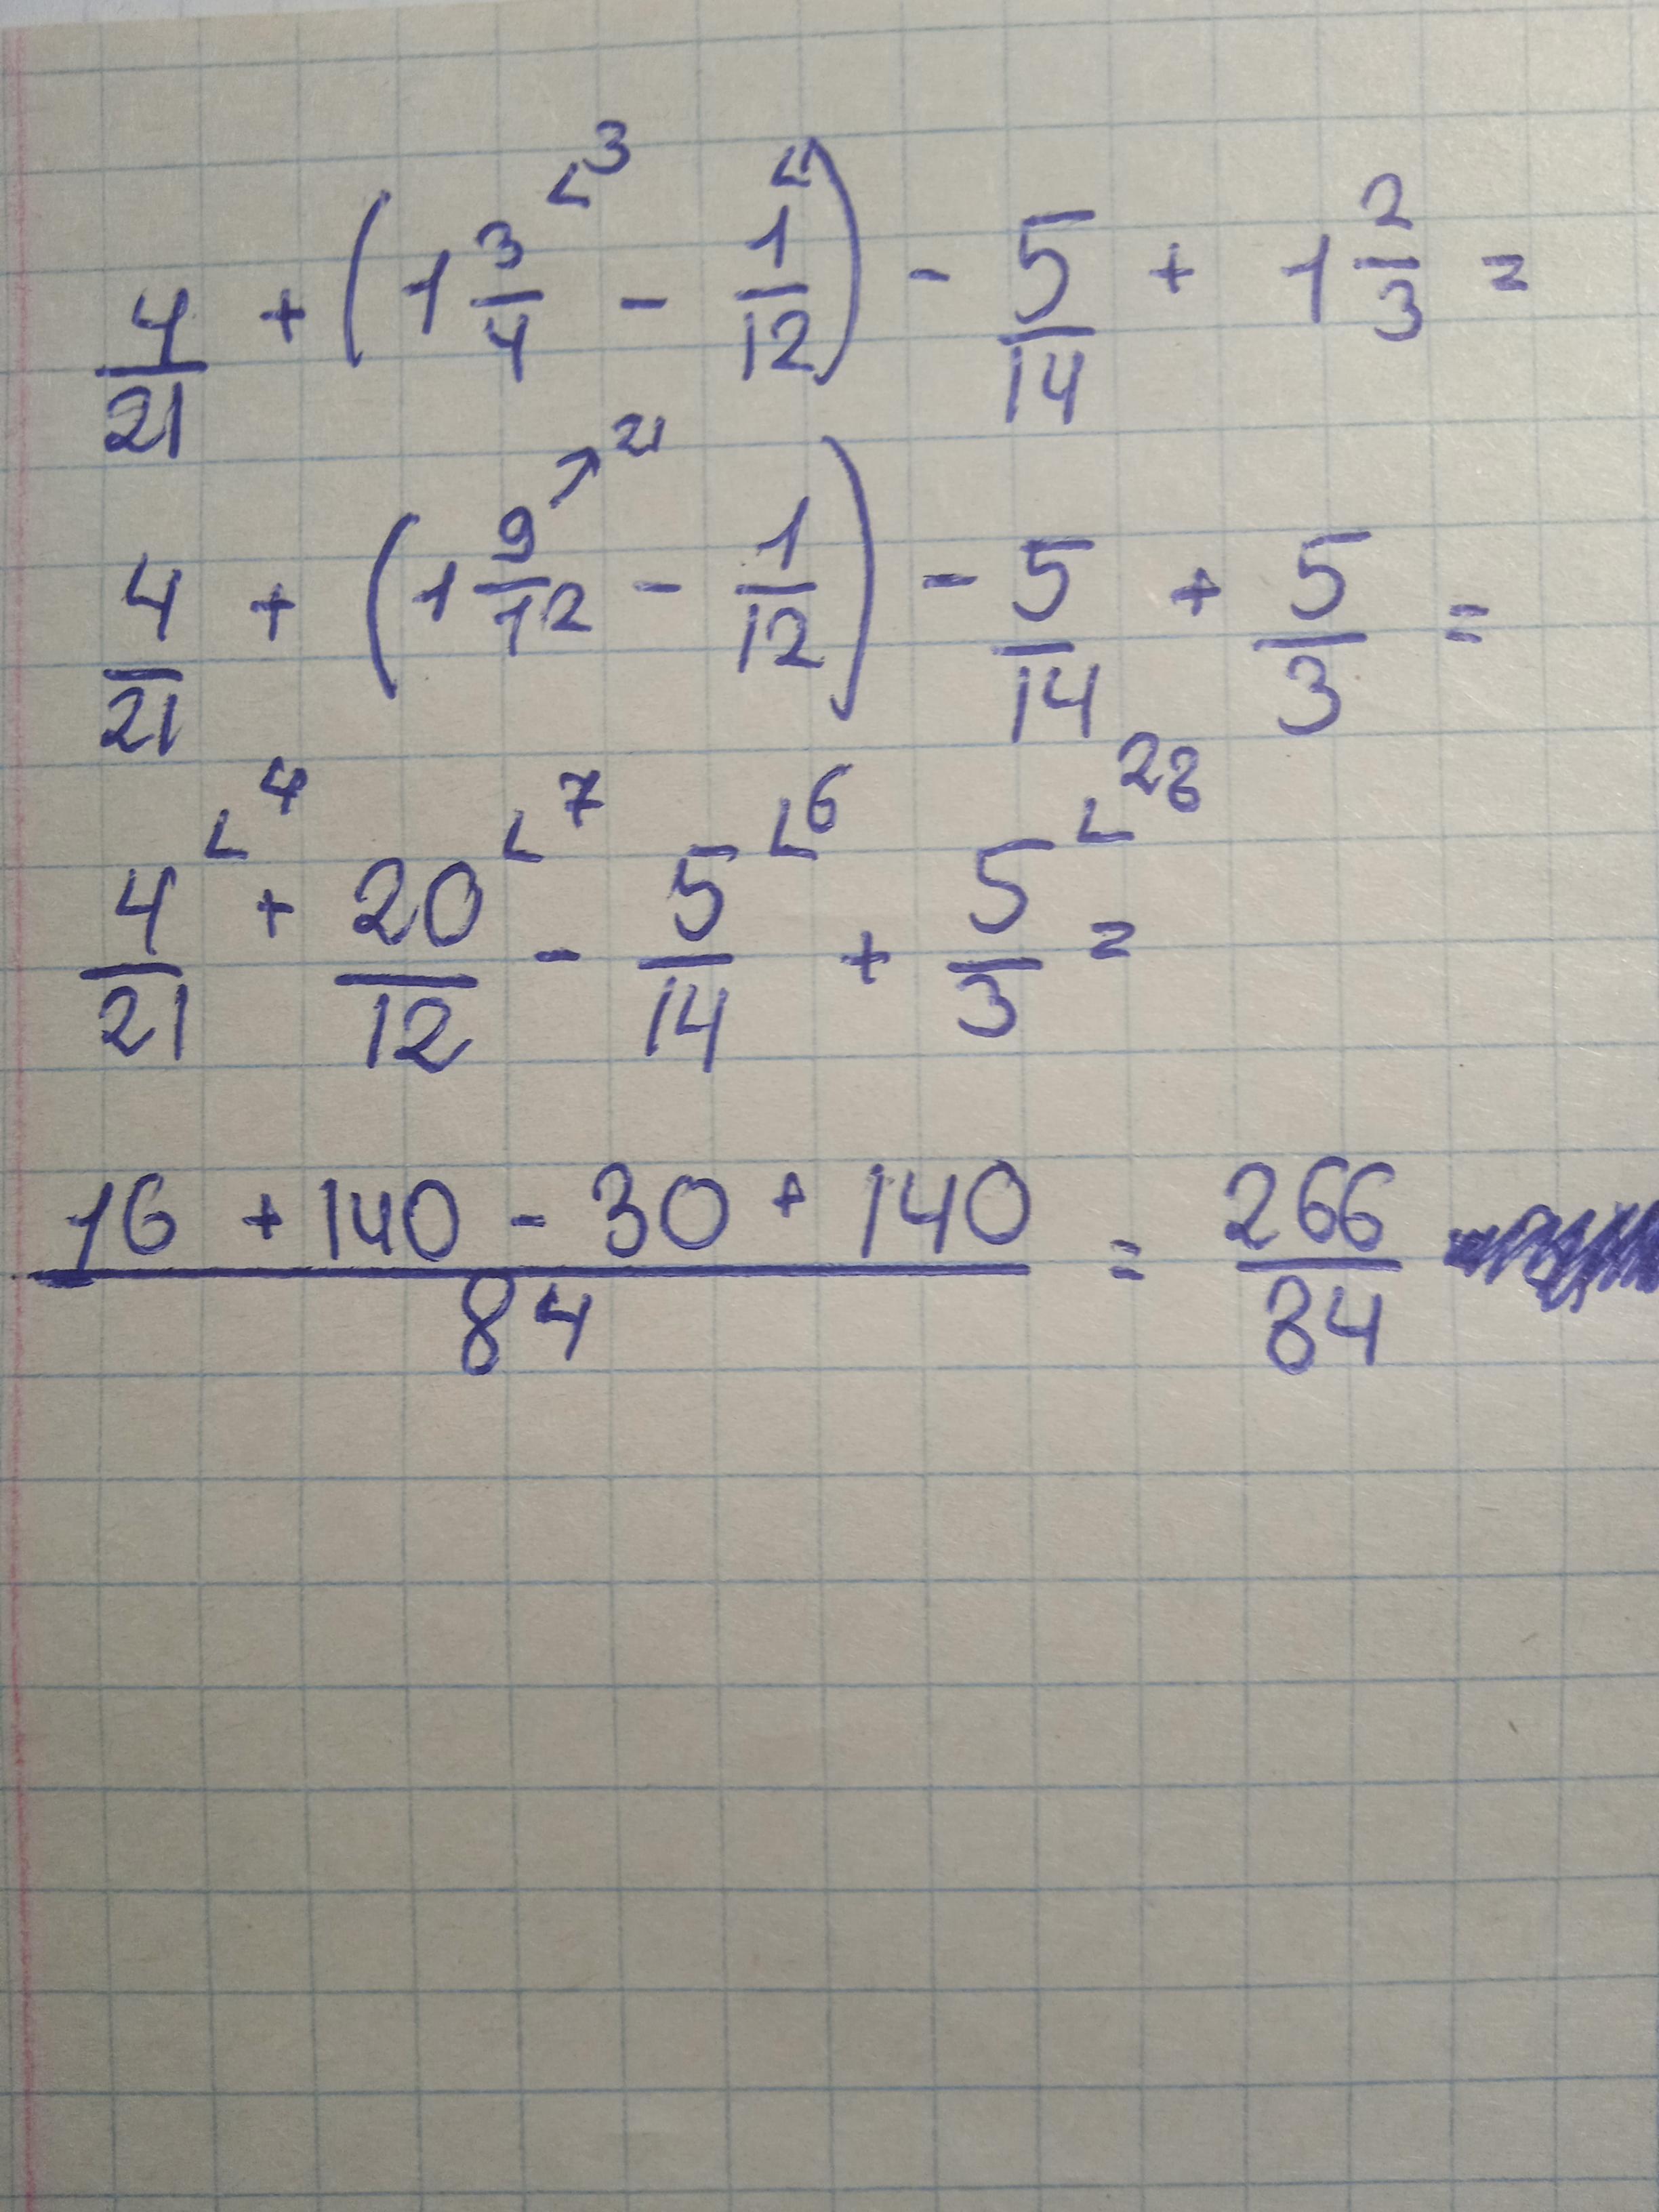 4/21 + (1 3/4 ∟3 - 1/12 ∟1) - 5/14 + 1 2/3 =
4/21 + (1 9/12 ↗21 - 1/12) - 5/14 + 5/3 =
4/21 ∟4 + 20/12 ∟7 - 5/14 ∟6 + 5/3 ∟28 =
16 + 140 - 30 + 140 / 84 = 266/84